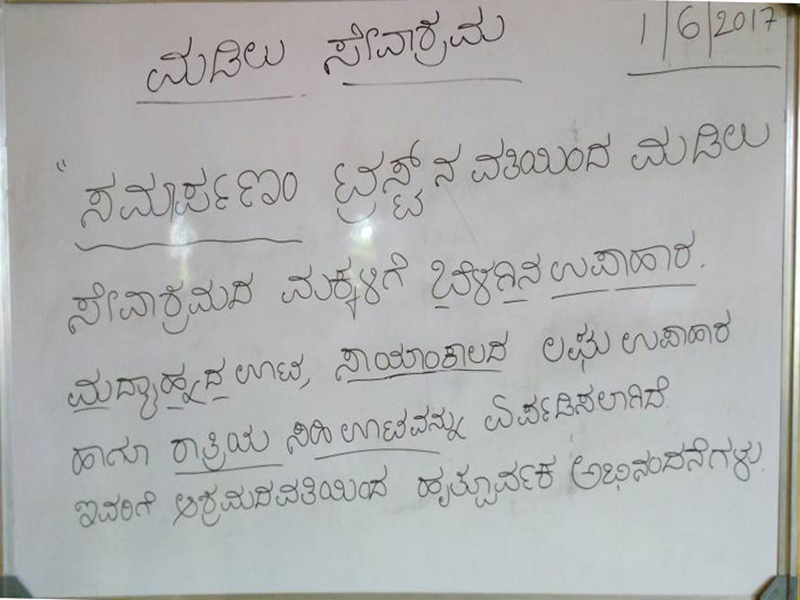 ಮಡಿಲು ಸೇವಾಶ್ರಮ 1/6/2017
"ಸಮರ್ಪಣಂ ಟ್ರಸ್ಟ್ ನ ವತಿಯಿಂದ ಮಡಿಲು
ಸೇವಾಶ್ರಮದ ಮಕ್ಕಳಿಗೆ ಬೆಳಗಿನ ಉಪಾಹಾರ.
ಮದ್ಯಾಹ್ನದ ಊಟ, ಸಾಯಾಂಕಾಲದ ಲಘು ಉಪಾಹಾರ
ಹಾಗೂ ರಾತ್ರಿಯ ಸಿಹಿ ಊಟವನ್ನು ಏರ್ಪಡಿಸಲಾಗಿದೆ
ಇವರಿಗೆ ಆಶ್ರಮದವತಿಯಿಂದ ಹೃತ್ಪೂರ್ವಕ ಅಭಿನಂದನೆಗಳು.